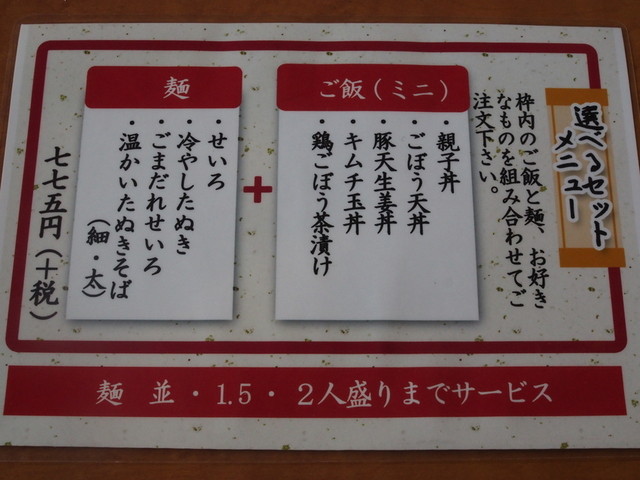 選べるセット
メニュー
枠内のご飯と麺、お好き
なものを組み合わせてご
注文下さい。
ご飯(ミニ)
・親子丼
・ごぼう天丼
・豚天生姜丼
・キムチ玉丼
・鶏ごぼう茶漬け
+
麺
・せいろ
・冷やしたぬき
・ごまだれせいろ
・温かいたぬきそば
(細・太)
七七五円(+税)
麺 並・1.5・2人盛りまでサービス